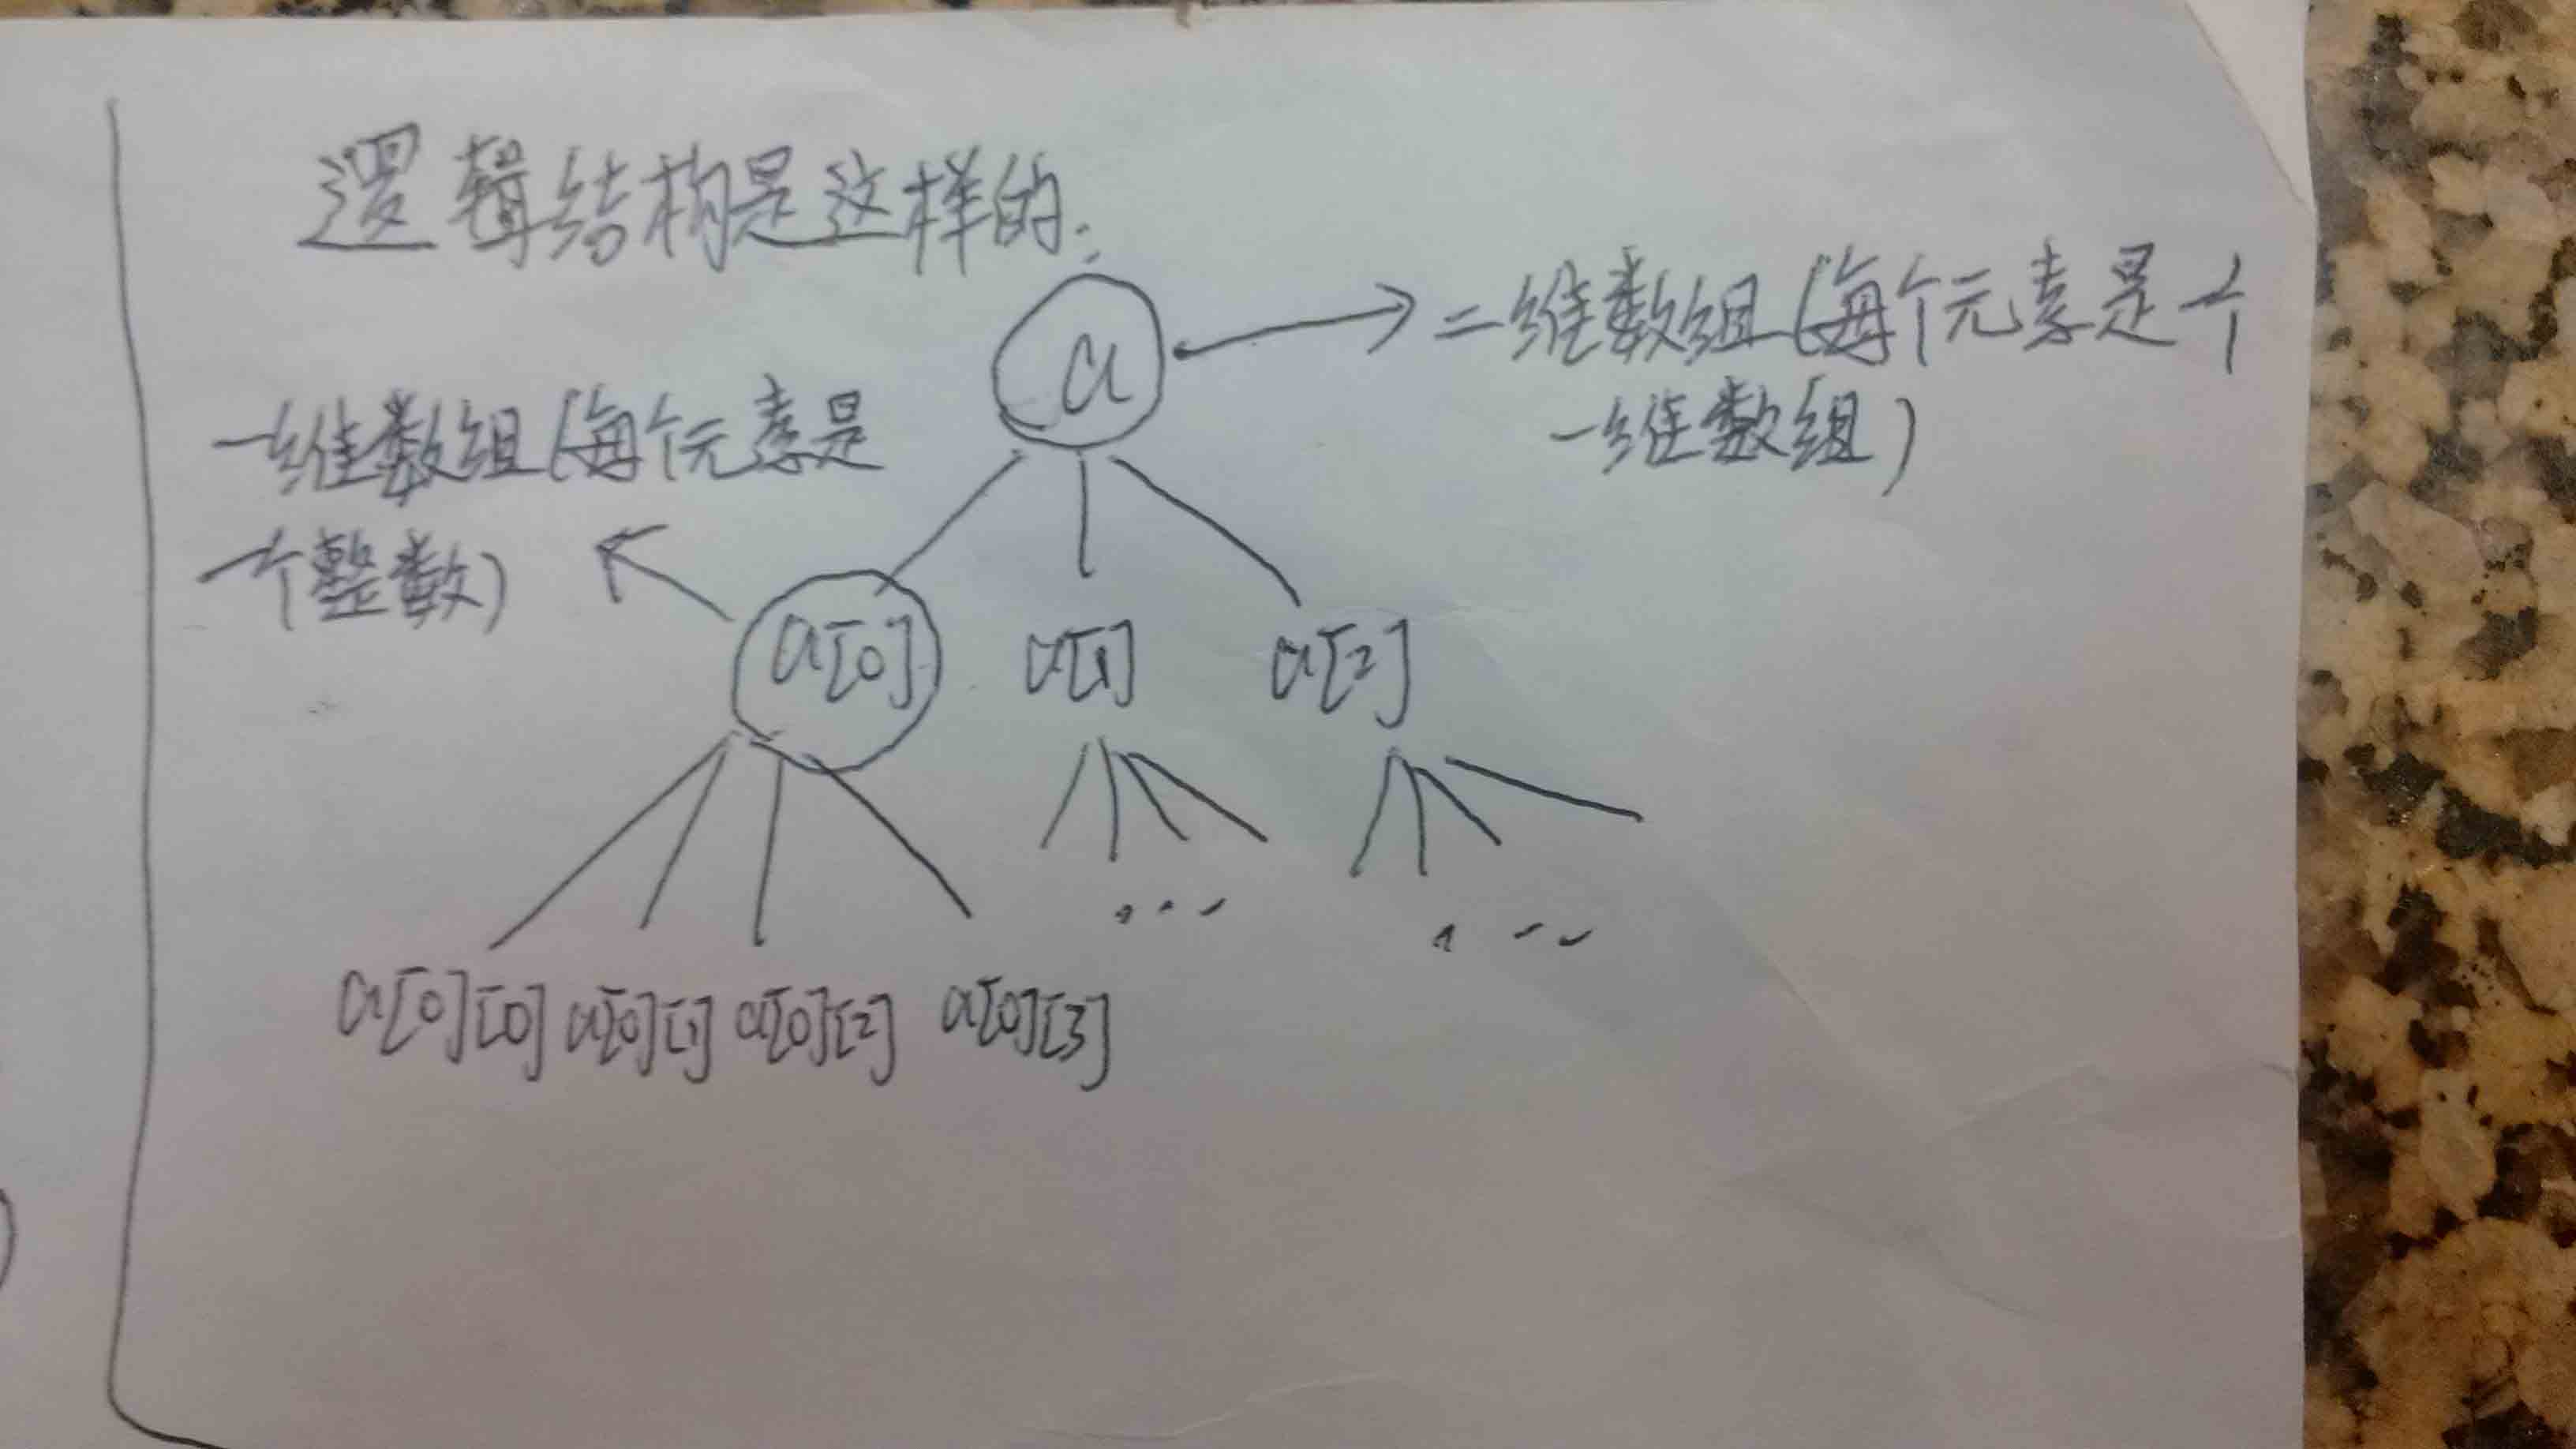 逻辑结构是这样的:
a
二维数组(每个元素是一个
一维数组)
一维数组(每个元素是
一个整数)
a[0] a[1] a[2]
... ...
a[0][0] a[0][1] a[0][2] a[0][3]